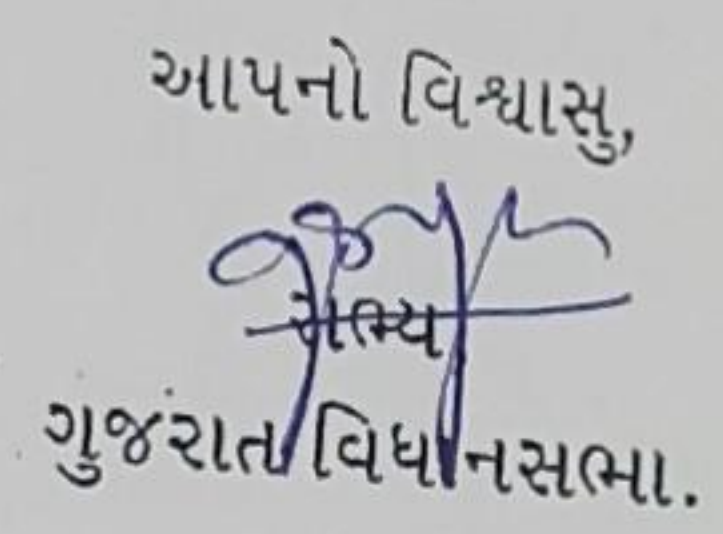 આપનો વિશ્વાસુ,
સભ્ય
ગુજરાત વિધાનસભા.